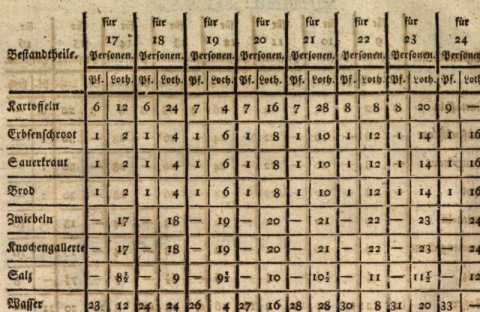 für für für für für für für für
17 18 19 20 21 22 23 24
Bestandtheile. Personen. Personen. Personen. Personen. Personen. Personen. Personen. Personen.
Pf. Loth. Pf. Loth. Pf. Loth. Pf. Loth. Pf. Loth. Pf. Loth. Pf. Loth. Pf. Loth.
Kartoffeln 6 12 6 24 7 4 7 16 7 28 8 8 8 20 9 —
Erbsenschroot 1 2 1 4 1 6 1 8 1 10 1 12 1 14 1 16
Sauerkraut 1 2 1 4 1 6 1 8 1 10 1 12 1 14 1 16
Brod 1 2 1 4 1 6 1 8 1 10 1 12 1 14 1 16
Zwiebeln — 17 — 18 — 19 — 20 — 21 — 22 — 23 — 24
Knochengallerte — 17 — 18 — 19 — 20 — 21 — 22 — 23 — 24
Salz — 8½ — 9 — 9½ — 10 — 10½ — 11 — 11½ — 12
Wasser 23 12 24 24 26 4 27 16 28 28 30 8 31 20 33 —